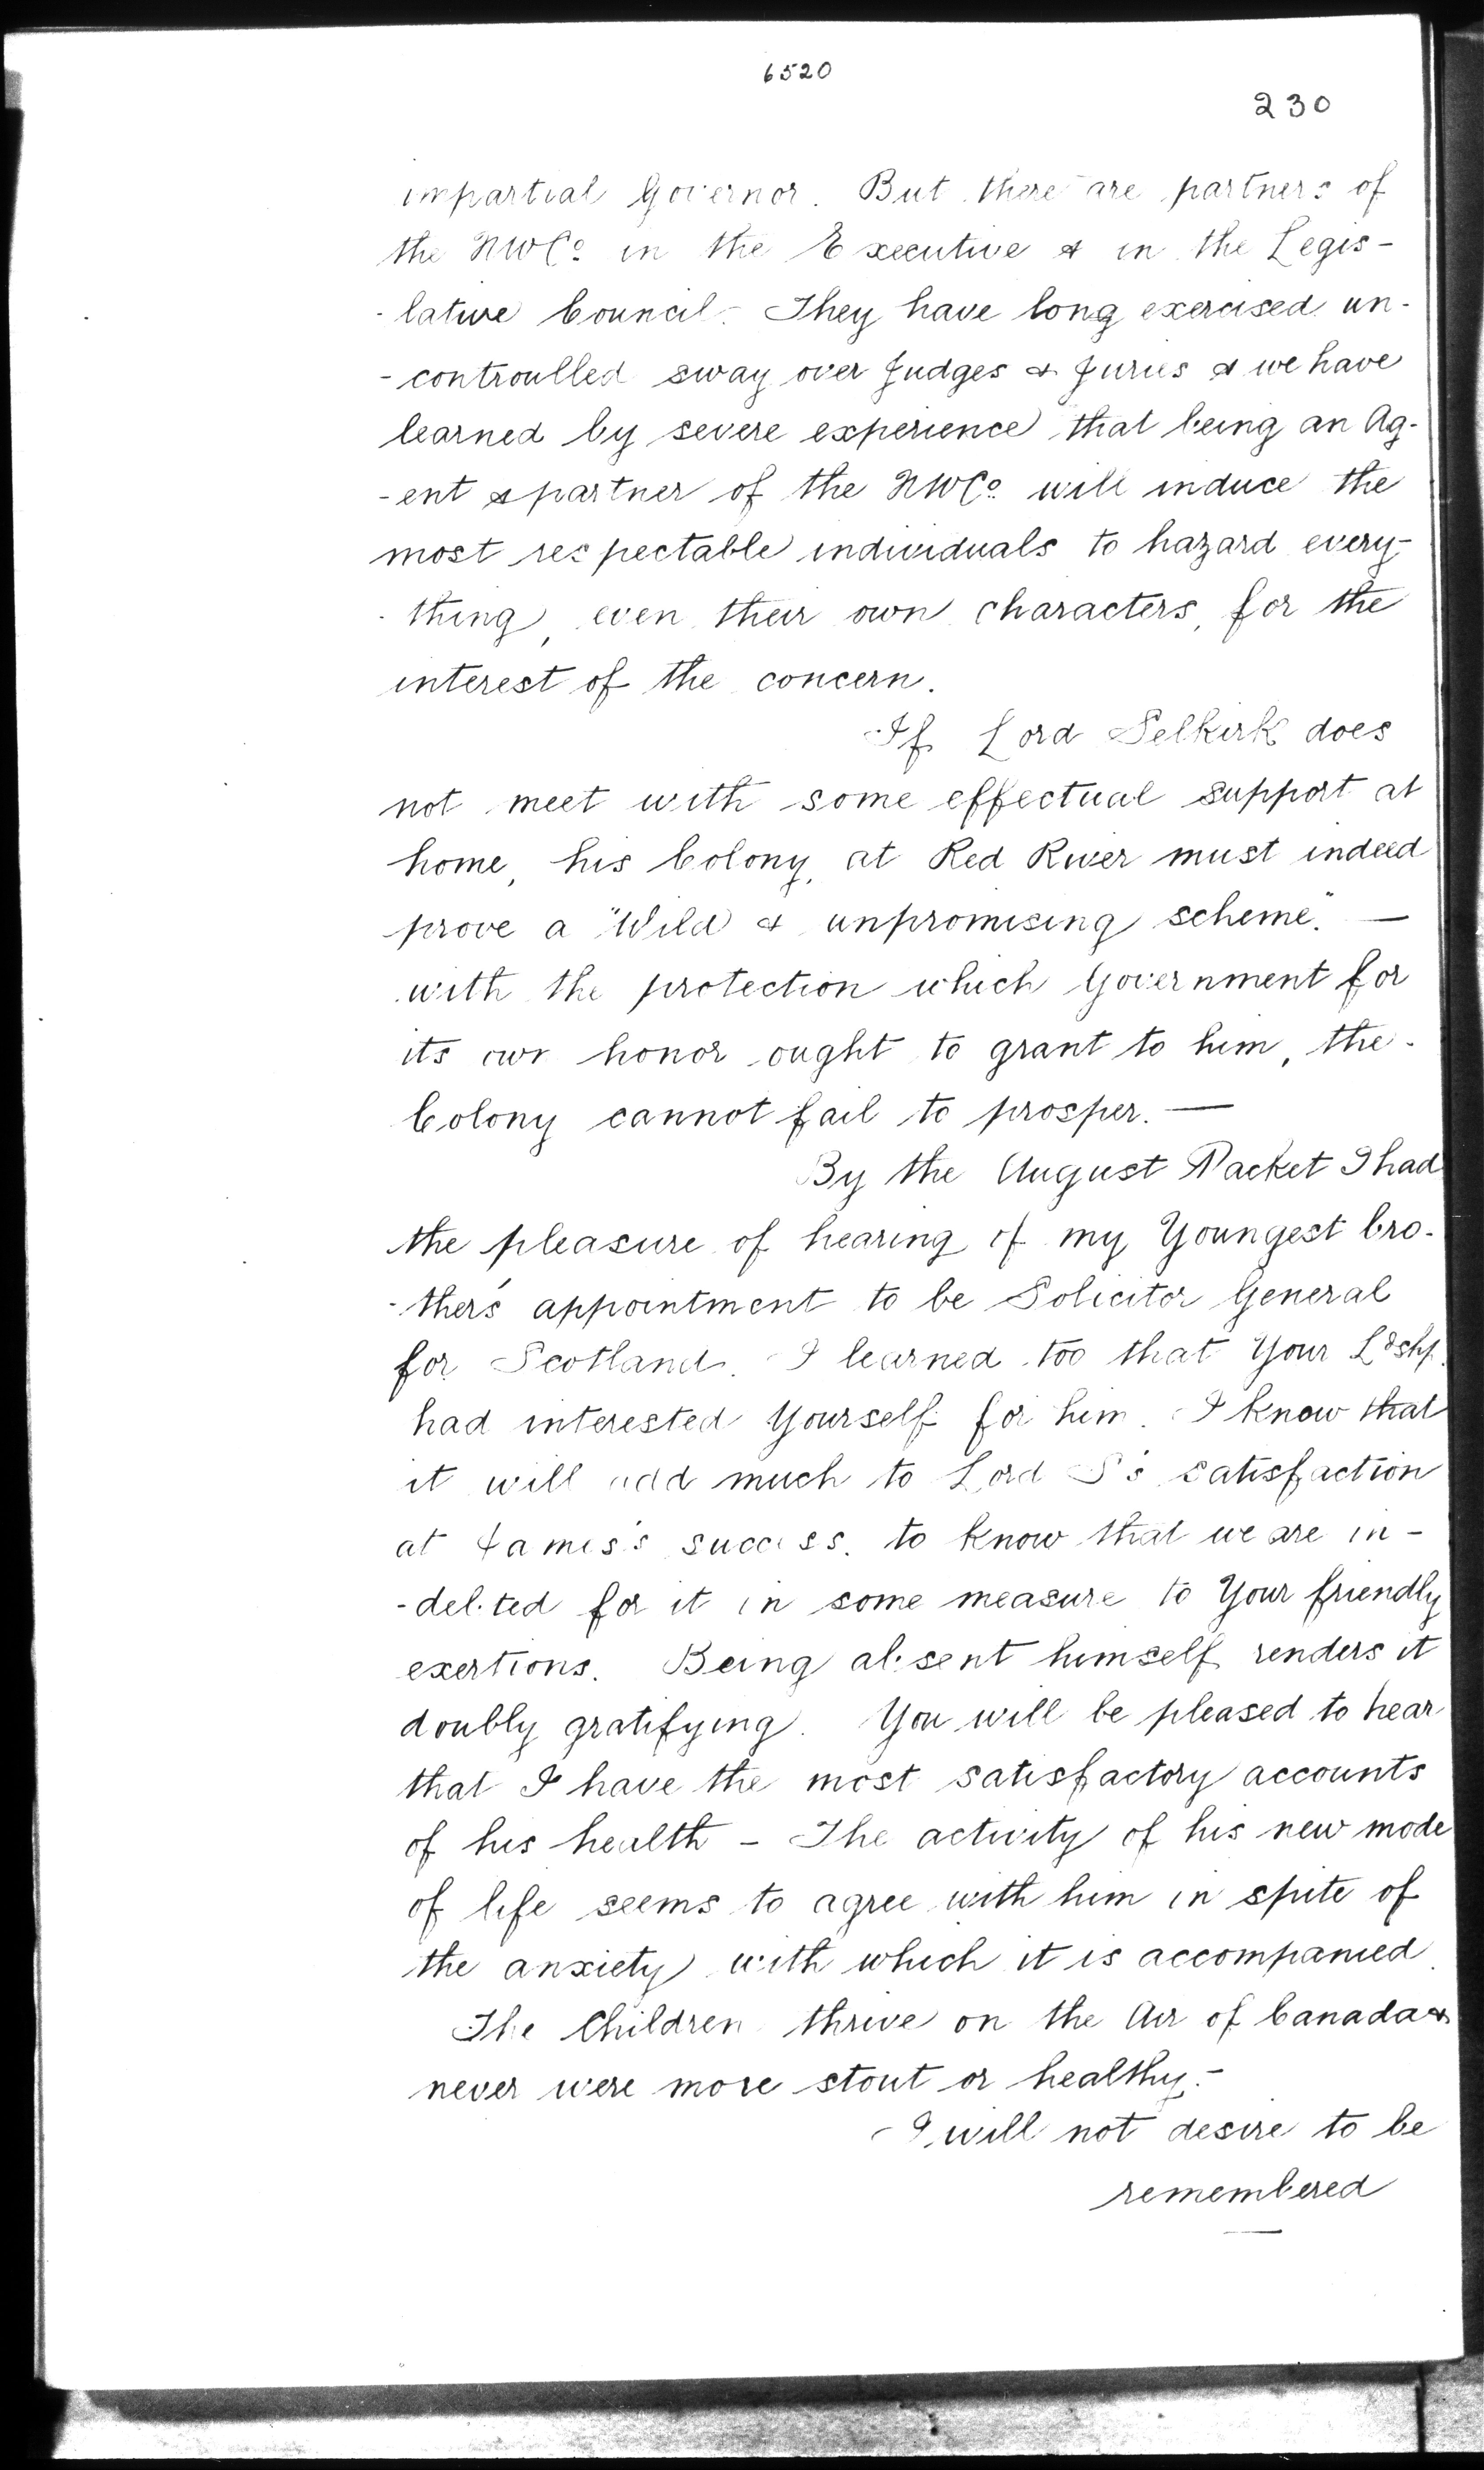 6520
230
impartial Governor. But there are partners of
the NWCo in the Executive & in the Legis-
-lative Council. They have long exercised un-
-controulled sway over Judges & Juries & we have
learned by severe experience that being an Ag-
-ent & partner of the NWCo will induce the
most respectable individuals to hazard every-
-thing, even their own characters, for the
interest of the concern.
If Lord Selkirk does
not meet with some effectual support at
home, his Colony, at Red River must indeed
prove a "Wild & unpromising scheme." —
with the protection which Government for
its own honor ought to grant to him, the
Colony cannot fail to prosper. —
By the August Packet I had
the pleasure of hearing of my Youngest bro-
-ther's appointment to be Solicitor General
for Scotland. I learned too that Your Ldshp.
had interested Yourself for him. I know that
it will add much to Lord S's satisfaction
at James's success. to know that we are in-
-debted for it in some measure to Your friendly
exertions. Being absent himself renders it
doubly gratifying. You will be pleased to hear
that I have the most satisfactory accounts
of his health - The activity of his new mode
of life seems to agree with him in spite of
the anxiety with which it is accompanied.
The Children thrive on the Air of Canada &
never were more stout or healthy. -
I will not desire to be
remembered